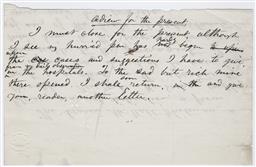 adieu for the present.
I must close for the present, although
I see my hurried pen has hardly begun
upon the cases and suggestions I have to give
from my daily observation
in the hospitals. To the sad but rich mine
there opened I shall soon return, & give
you, reader, another letter.